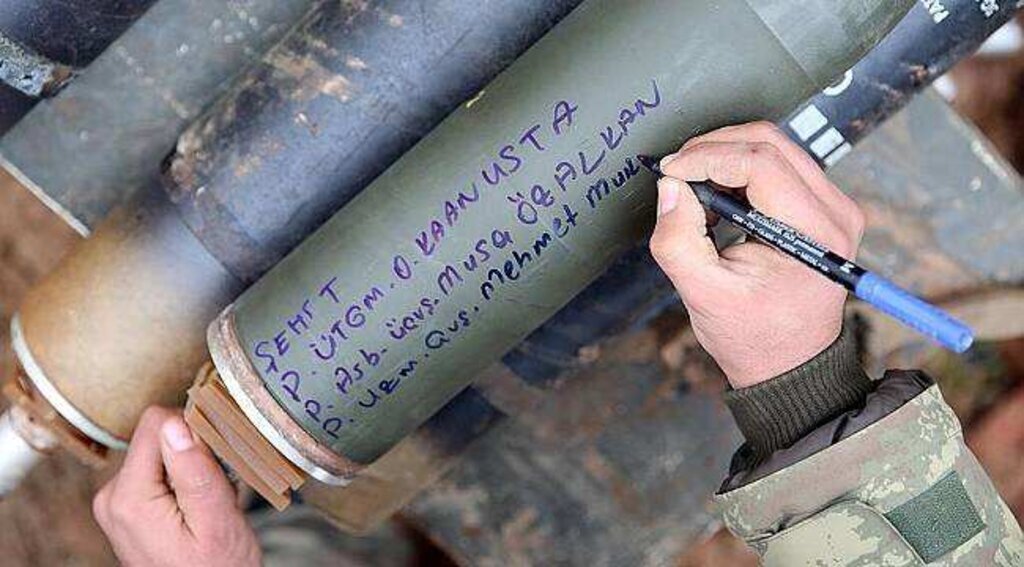 ŞEHİT
P. ÜTĞM. O. KAAN USTA
P. Asb. üçvş. MUSA ÖZALKAN
P. uzm. çvş. Mehmet Mur